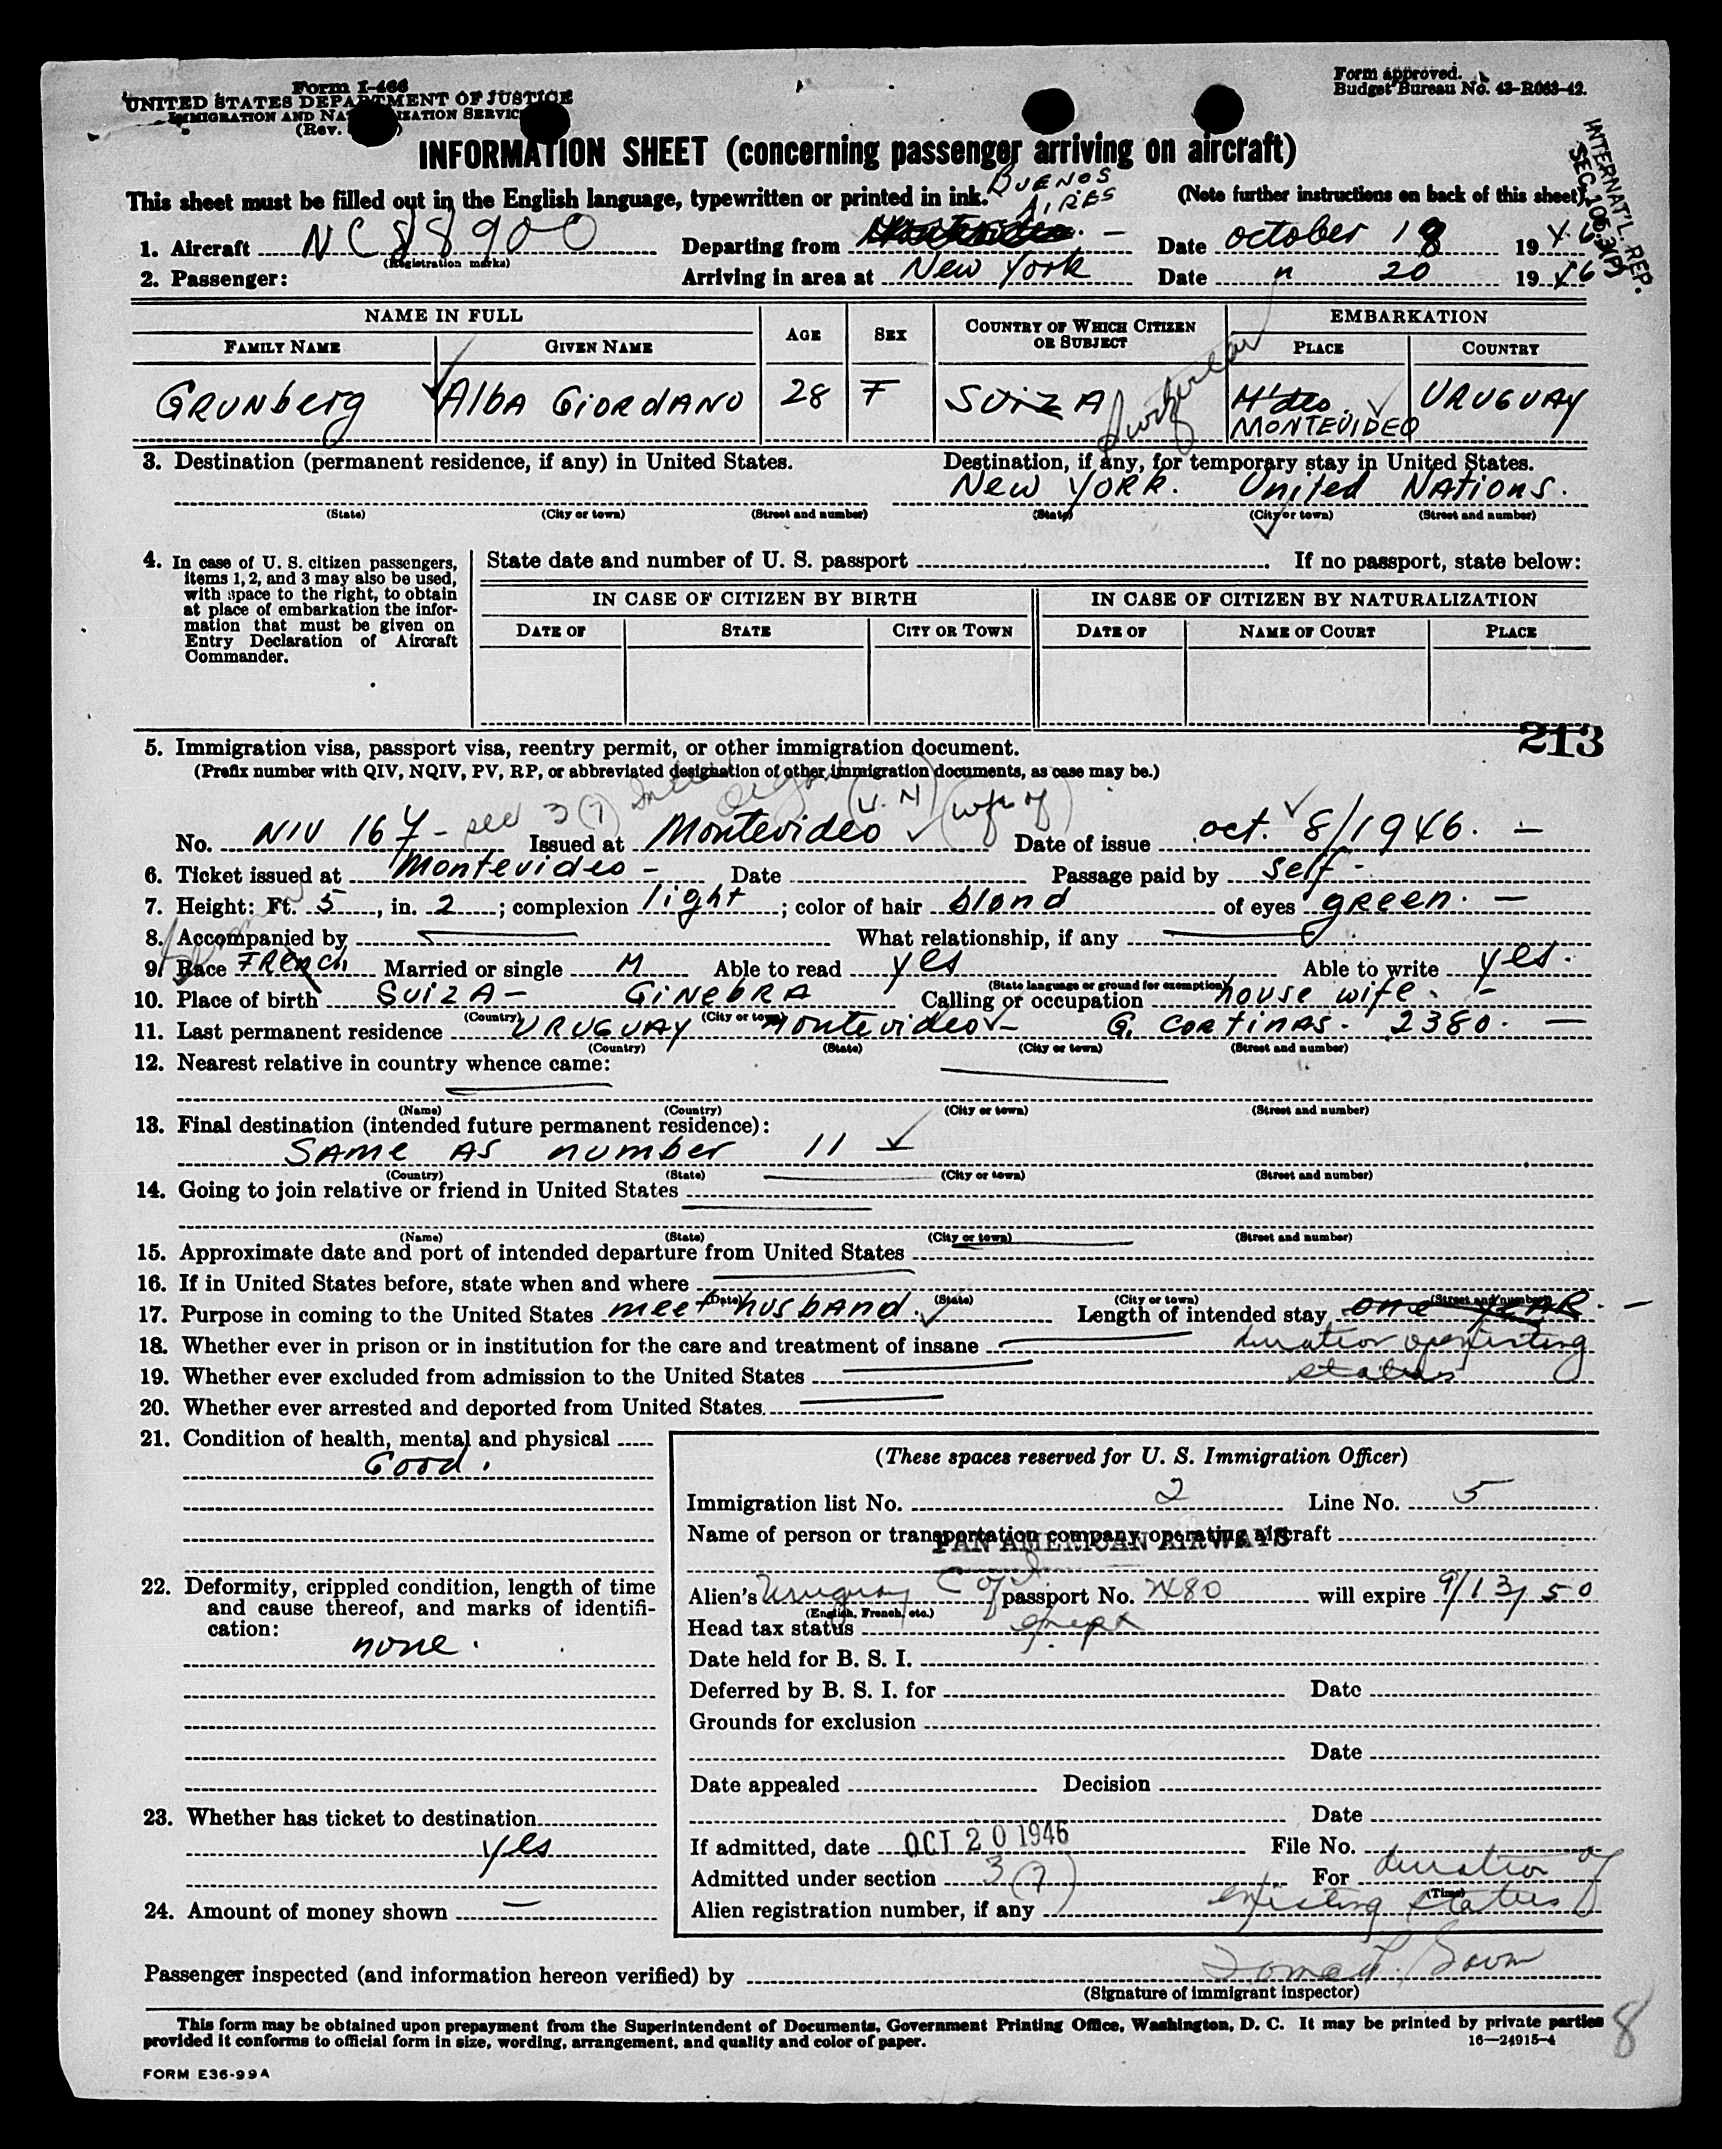 Form I-466
UNITED STATES DEPARTMENT OF JUSTICE
IMMIGRATION AND NATURALIZATION SERVICE
(Rev.
Form approved.
Budget Bureau No. 43-R063-42.
INTERNAT'L. REP.
SEC.
INFORMATION SHEET (concerning passenger arriving on aircraft)
This sheet must be filled out in the English language, typewritten or printed in ink. (Note further instructions on back of this sheet)
BUENOS AIRES
1. Aircraft NC 88900 Departing from Date october 18 1946
(Registration marks)
2. Passenger: Arriving in area at New York Date " 20 1946
NAME IN FULL AGE SEX COUNTRY OF WHICH CITIZEN OR SUBJECT EMBARKATION
FAMILY NAME GIVEN NAME PLACE COUNTRY
GRUNberg AlbA GiORdANO 28 F SUiZA Switzerland M'deo. MONTEVIDEO URUGUAY
3. Destination (permanent residence, if any) in United States. Destination, if any, for temporary stay in United States.
New YORK. United NAtions.
(State) (City or town) (Street and number) (State) (City or town) (Street and number)
4. In case of U. S. citizen passengers, items 1, 2, and 3 may also be used, with space to the right, to obtain at place of embarkation the information that must be given on Entry Declaration of Aircraft Commander.
State date and number of U. S. passport If no passport, state below:
IN CASE OF CITIZEN BY BIRTH IN CASE OF CITIZEN BY NATURALIZATION
DATE OF STATE CITY OR TOWN DATE OF NAME OF COURT PLACE
213
5. Immigration visa, passport visa, reentry permit, or other immigration document.
(Prefix number with QIV, NQIV, PV, RP, or abbreviated designation of other immigration documents, as case may be.)
see 3(7) (U.N) (wife of)
No. NIV 167- Issued at Montevideo Date of issue oct. 8/1946. -
6. Ticket issued at Montevideo - Date Passage paid by self -
7. Height: Ft. 5, in. 2; complexion light; color of hair blond of eyes green. -
8. Accompanied by What relationship, if any
9. Race FRENch Married or single M Able to read yes Able to write yes.
(State language or ground for exemption)
10. Place of birth SUiZA - GiNEbRA Calling or occupation house wife. -
(Country) (City or town)
11. Last permanent residence URUGUAY Montevideo - G. CORTINAS. 2380. -
(Country) (State) (City or town) (Street and number)
12. Nearest relative in country whence came:
(Name) (Country) (City or town) (Street and number)
13. Final destination (intended future permanent residence):
SAME AS number 11
(Country) (State) (City or town) (Street and number)
14. Going to join relative or friend in United States
(Name) (State) (City or town) (Street and number)
15. Approximate date and port of intended departure from United States
16. If in United States before, state when and where
(Date) (State) (City or town) (Street and number)
17. Purpose in coming to the United States meet husbAND. Length of intended stay one yeAR. -
duration of existing status
18. Whether ever in prison or in institution for the care and treatment of insane
19. Whether ever excluded from admission to the United States
20. Whether ever arrested and deported from United States.
21. Condition of health, mental and physical
Good.
22. Deformity, crippled condition, length of time and cause thereof, and marks of identification:
none.
23. Whether has ticket to destination
yes
24. Amount of money shown -
(These spaces reserved for U. S. Immigration Officer)
Immigration list No. 2 Line No. 5
Name of person or transportation company operating aircraft
PAN AMERICAN AIRWAYS
Alien's Uruguay C of I passport No. 2480 will expire 9/13/50
(English, French, etc.)
Head tax status
Date held for B. S. I.
Deferred by B. S. I. for Date
Grounds for exclusion
Date
Date appealed Decision
Date
If admitted, date OCT 20 1946 File No.
Admitted under section 3(7) For duration of
(Time)
Alien registration number, if any existing status
Passenger inspected (and information hereon verified) by
(Signature of immigrant inspector)
This form may be obtained upon prepayment from the Superintendent of Documents, Government Printing Office, Washington, D. C. It may be printed by private parties
provided it conforms to official form in size, wording, arrangement, and quality and color of paper. 16—24915-4
8
FORM E36-99A